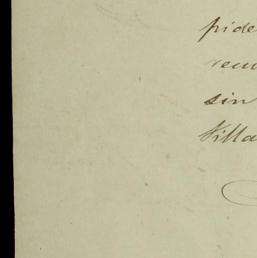 pide
rem
sin
Villa